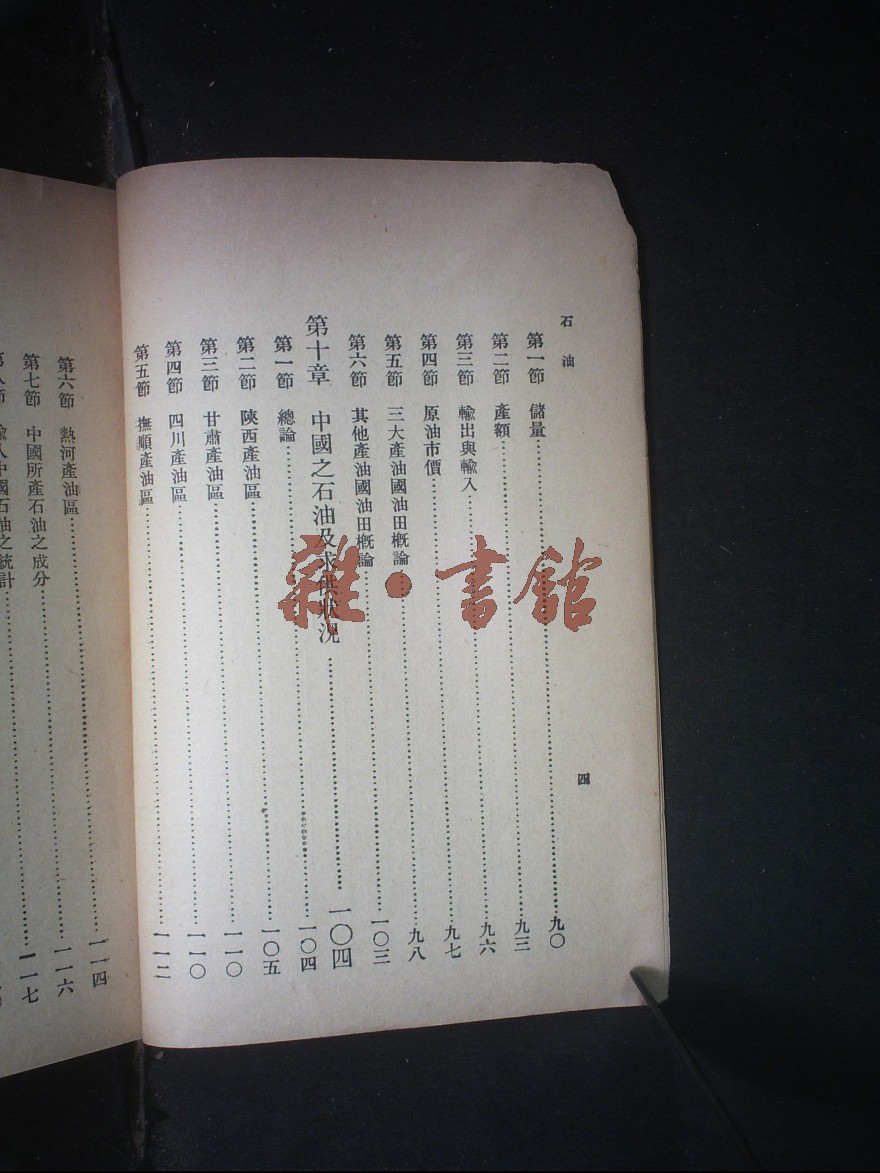 石油
四
第一節 儲量……九〇
第二節 產額……九三
第三節 輸出與輸入……九六
第四節 原油市價……九七
第五節 三大產油國油田概論……九八
第六節 其他產油國油田概論……一〇三
第十章 中國之石油及求供狀況……一〇四
第一節 總論……一〇四
第二節 陝西產油區……一〇五
第三節 甘肅產油區……一一〇
第四節 四川產油區……一一〇
第五節 撫順產油區……一一二
第六節 熱河產油區……一一四
第七節 中國所產石油之成分……一一六
輸入中國石油之統計……一一七
雜·書館